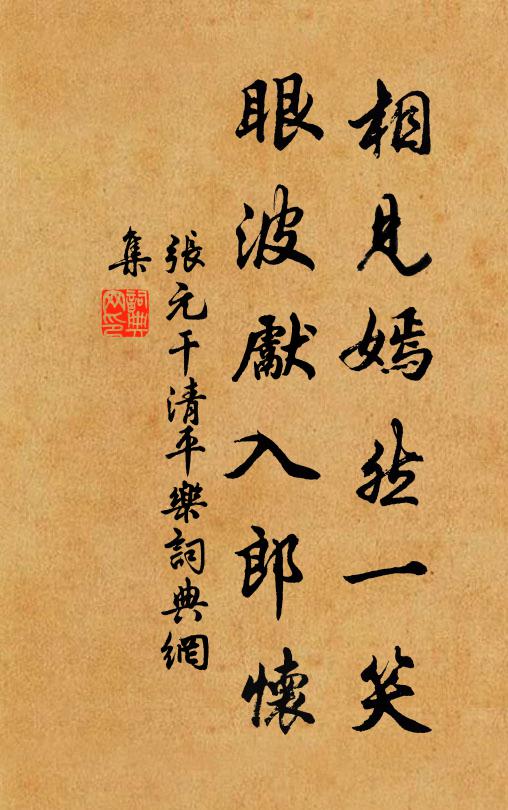 相見嫣然一笑
眼波獻入郎懷
張元干清平樂詞典網
集
詞典網印